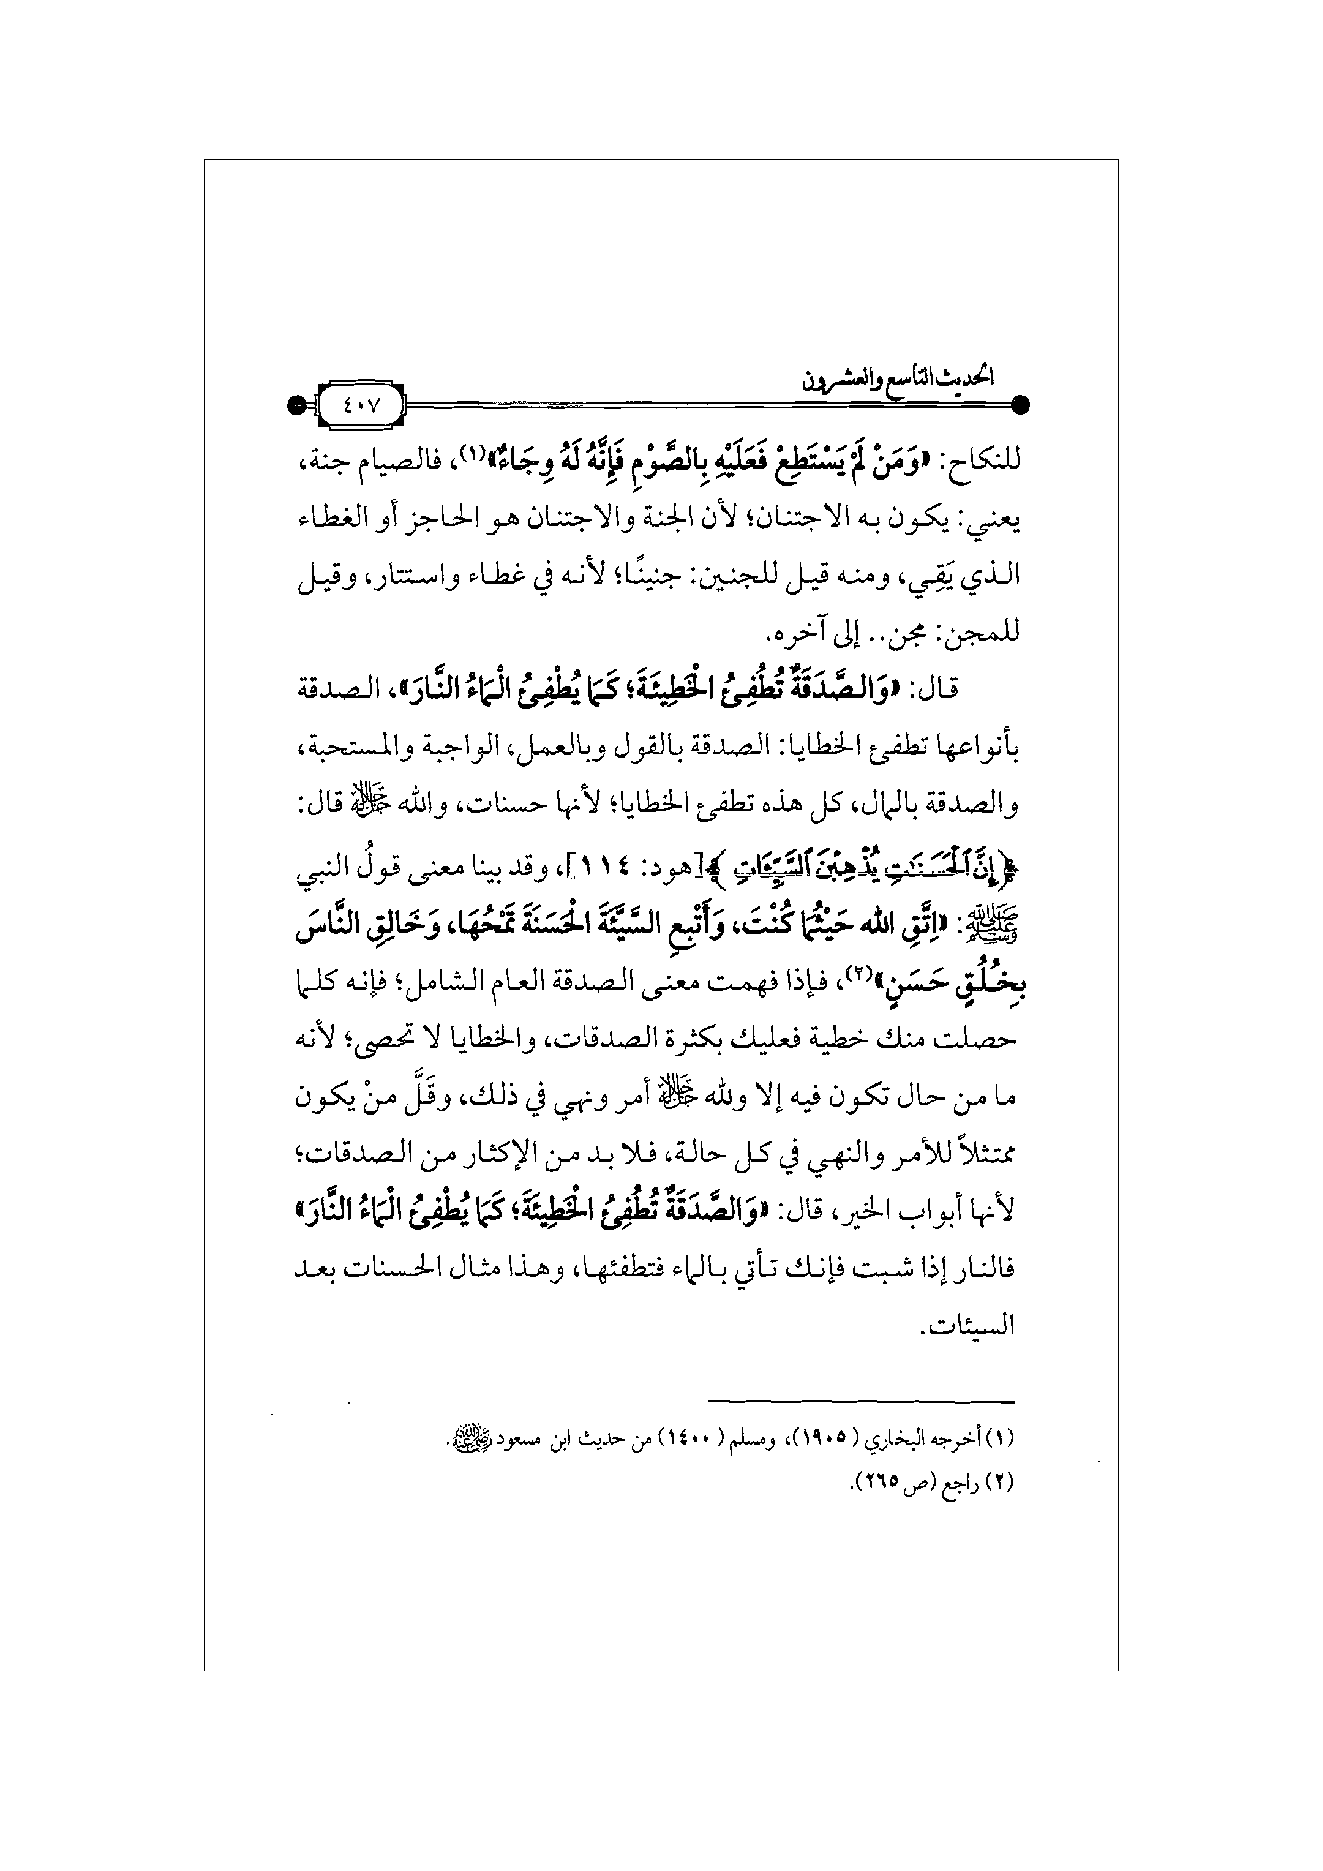 الحديث التاسع والعشرون
٤٠٧
للنكاح: «وَمَنْ لَمْ يَسْتَطِعْ فَعَلَيْهِ بِالصَّوْمِ فَإِنَّهُ لَهُ وِجَاءٌ»(١)، فالصيام جنة،
يعني: يكون به الاجتنان؛ لأن الجنة والاجتنان هو الحاجز أو الغطاء
الذي يَقِي، ومنه قيل للجنين: جنينًا؛ لأنه في غطاء واستتار، وقيل
للمجن: مجن.. إلى آخره.
قال: «وَالصَّدَقَةُ تُطْفِئُ الْخَطِيئَةَ؛ كَمَا يُطْفِئُ الْمَاءُ النَّارَ»، الصدقة
بأنواعها تطفئ الخطايا: الصدقة بالقول وبالعمل، الواجبة والمستحبة،
والصدقة بالمال، كل هذه تطفئ الخطايا؛ لأنها حسنات، والله ﷻ قال:
﴿إِنَّ ٱلْحَسَنَٰتِ يُذْهِبْنَ ٱلسَّيِّـَٔاتِ﴾[هود: ١١٤]، وقد بينا معنى قولُ النبي
ﷺ: «اِتَّقِ الله حَيْثُمَا كُنْتَ، وَأَتْبِعِ السَّيِّئَةَ الْحَسَنَةَ تَمْحُهَا، وَخَالِقِ النَّاسَ
بِخُلُقٍ حَسَنٍ»(٢)، فإذا فهمت معنى الصدقة العام الشامل؛ فإنه كلما
حصلت منك خطية فعليك بكثرة الصدقات، والخطايا لا تحصى؛ لأنه
ما من حال تكون فيه إلا ولله ﷻ أمر ونهي في ذلك، وقَلَّ منْ يكون
ممتثلاً للأمر والنهي في كل حالة، فلا بد من الإكثار من الصدقات؛
لأنها أبواب الخير، قال: «وَالصَّدَقَةُ تُطْفِئُ الْخَطِيئَةَ؛ كَمَا يُطْفِئُ الْمَاءُ النَّارَ»
فالنار إذا شبت فإنك تأتي بالماء فتطفئها، وهذا مثال الحسنات بعد
السيئات.
(١) أخرجه البخاري (١٩٠٥)، ومسلم (١٤٠٠) من حديث ابن مسعود رضي الله عنه.
(٢) راجع (ص ٢٦٥).